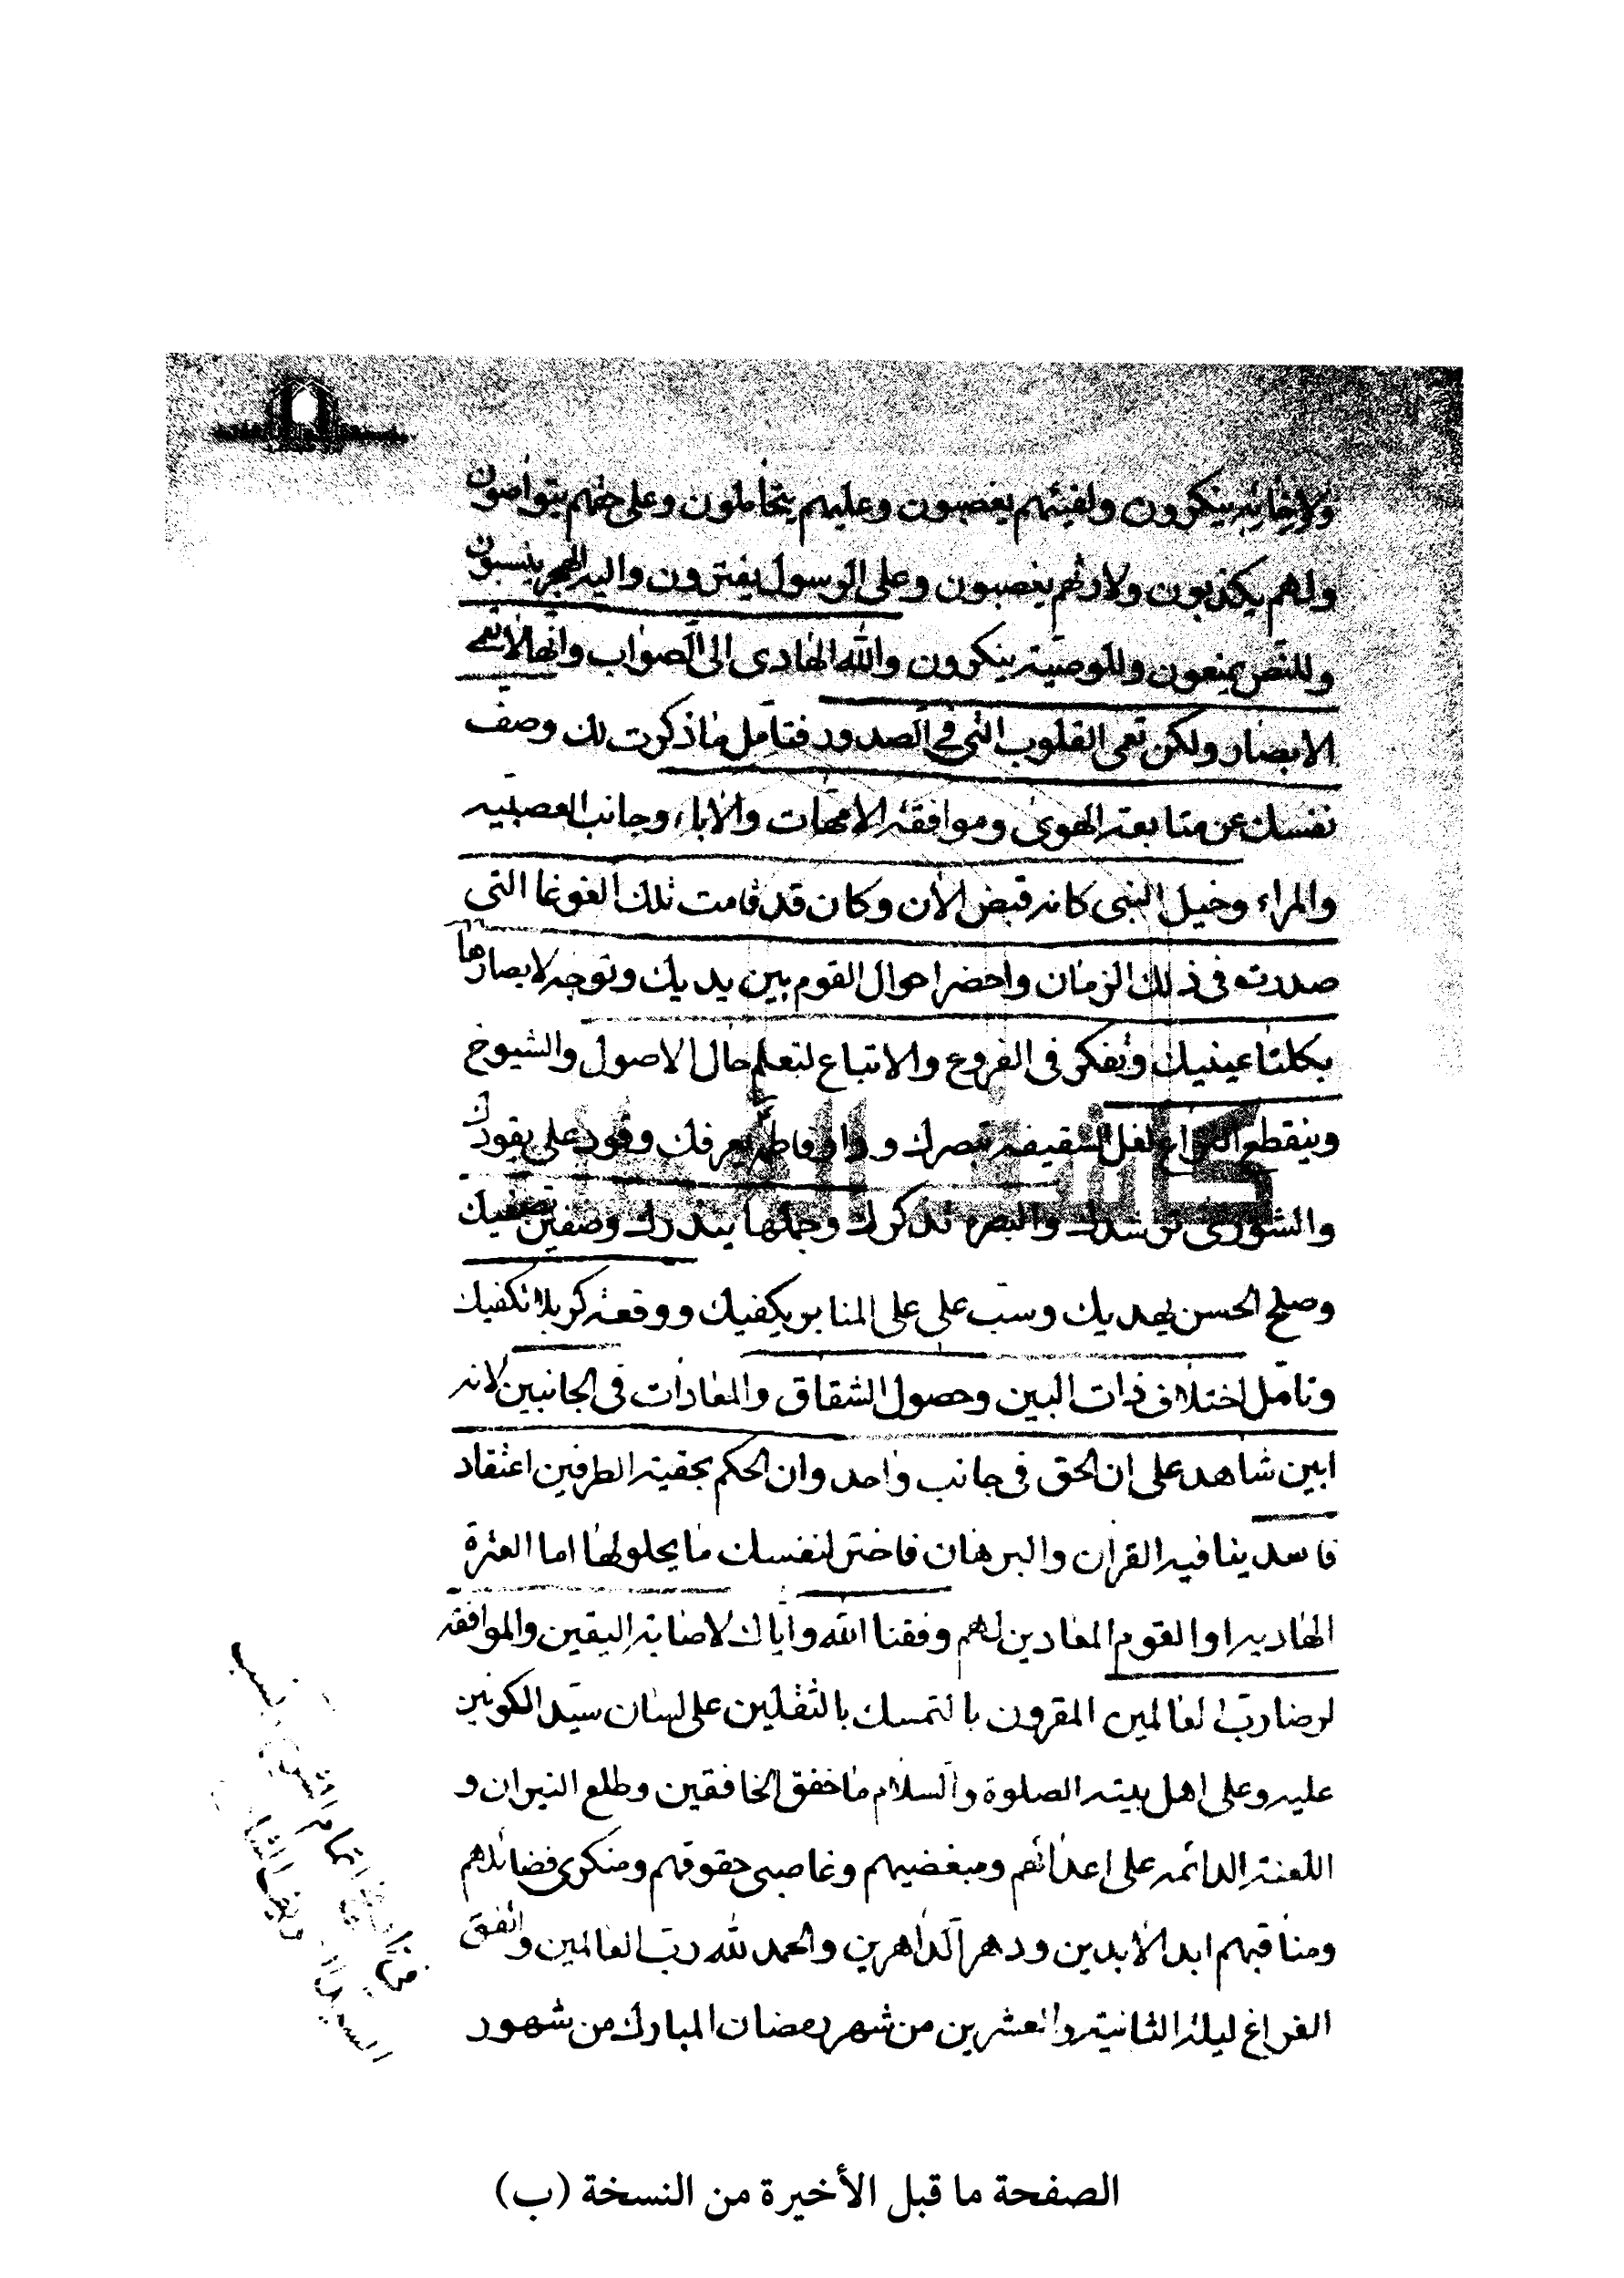 ولاخائه ينكرون ولفيئهم يغصبون وعليهم يتحاملون وعلى حقهم يتواصون
ولهم يكذبون ولارثهم يغصبون وعلى الرسول يفترون واليه الهجر ينسبون
وللنص يمنعون وللوصية ينكرون والله الهادى الى الصواب وانها لا تعمى
الابصار ولكن تعمى القلوب التى فى الصدور فتامل ما ذكرت لك وصف
نفسك عن متابعة الهوى وموافقة الامهات والاباء وجانب العصبية
والمراء وخيل النبى كانه قبض الان وكان قد قامت تلك الغوغا التى
صدرت فى ذلك الزمان واحضر احوال القوم بين يديك وتوجه لابصارها
بكلتا عينيك وتفكر فى الفروع والاتباع لتعلم حال الاصول والشيوخ
وينقطع النزاع لعل السقيفة تبصرك و فاطمة يعرفك وقود على يقودك
والشورى ترشدك والبصرة تذكرك وجملها ينذرك وصفين
وصلح الحسن يهديك وسب على على المنابر يكفيك ووقعة كربلا تكفيك
وتامل اختلاف ذات البين وحصول الشقاق والمعادات فى الجانبين لانه
ابين شاهد على ان الحق فى جانب واحد وان الحكم بحقية الطرفين اعتقاد
فاسد ينافيه القران والبرهان فاختر لنفسك ما يحلو لها اما العترة
الهادية او القوم المعادين لهم وفقنا الله واياك لاصابة اليقين والموافقة
لرضا رب العالمين المقرون بالتمسك بالثقلين على لسان سيد الكونين
عليه وعلى اهل بيته الصلوة والسلام ما خفق الخافقين وطلع النيران و
اللعنة الدائمة على اعدائهم ومبغضيهم وغاصبى حقوقهم ومنكرى فضائلهم
ومناقبهم ابد الابدين ودهر الداهرين والحمد لله رب العالمين واتفق
الفراغ ليلة الثانية والعشرين من شهر رمضان المبارك من شهور
الصفحة ما قبل الأخيرة من النسخة (ب)